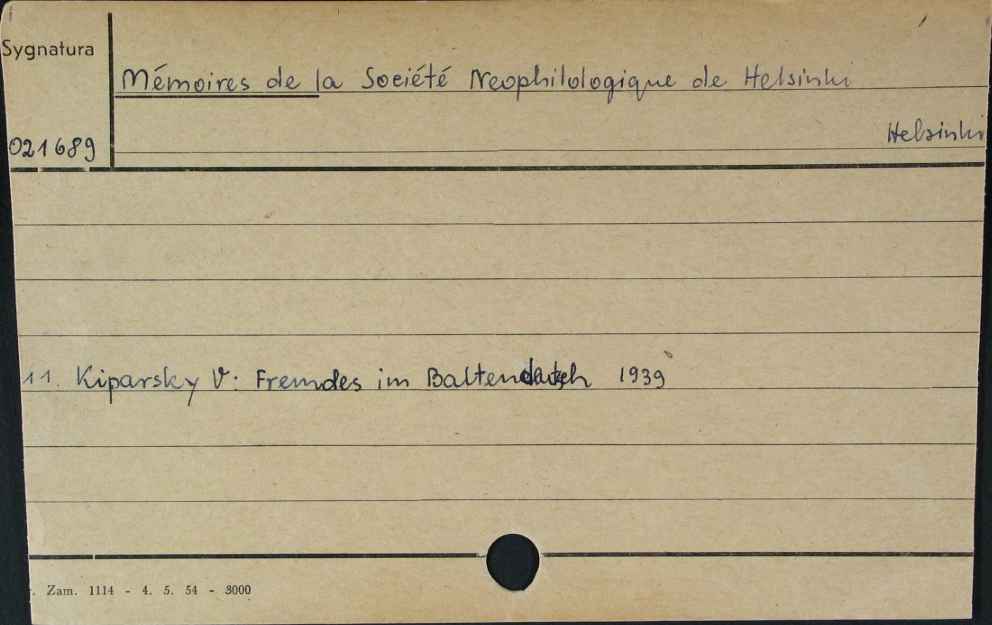 Sygnatura
Mémoires de la Société Neophilologique de Helsinki
Helsinki
021689
11. Kiparsky V: Fremdes im Baltendeutsch 1939
. Zam. 1114 - 4. 5. 54 - 3000